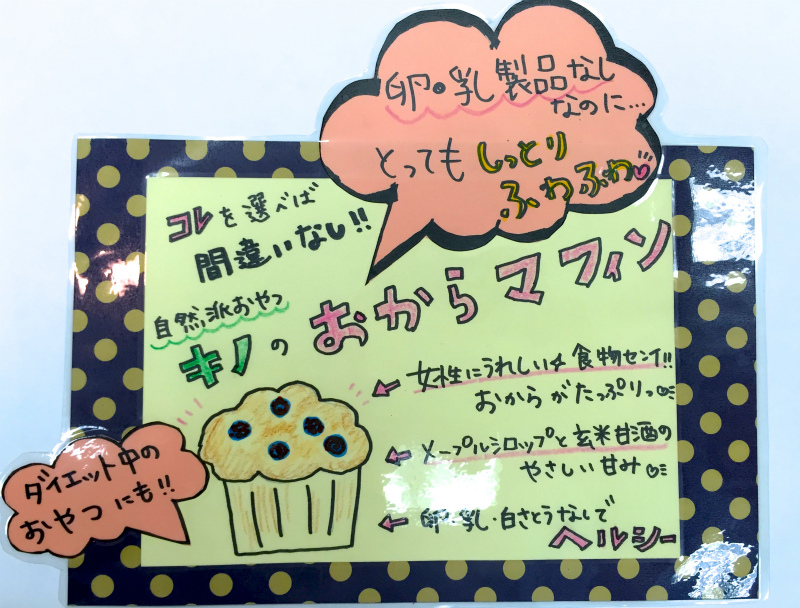 卵・乳製品なし
なのに…
とっても しっとり
ふわふわ
コレを選べば
間違いなし!!
自然派おやつ
キノの おからマフィン
女性にうれしい 食物センイ!!
おからがたっぷりっ
メープルシロップと玄米甘酒の
やさしい甘み
卵・乳・白さとうなしで
ヘルシー
ダイエット中の
おやつにも!!